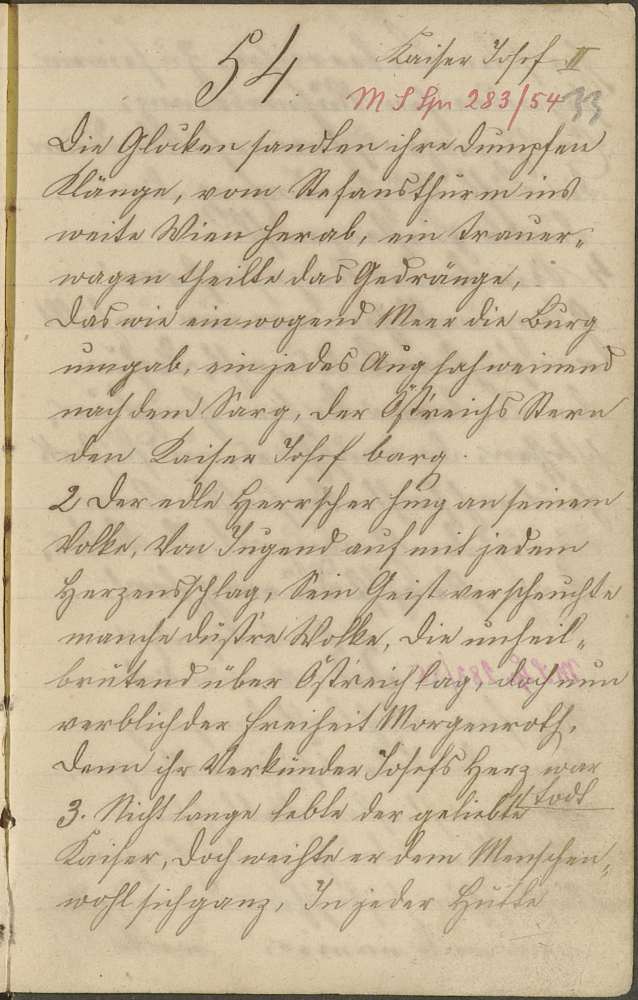 54. Kaiser Josef II
M S Spr 283/54 33
Die Glocken sandten ihre dumpfen
Klänge, vom Stefansthurm ins
weite Wien herab, ein trauer-
wagen theilte das Gedränge,
das wie ein wogend Meer die Burg
umgab, ein jedes Aug sah weinend
nach dem Sarg, der Östreichs Stern
den Kaiser Josef barg.
2 Der edle Herrscher hing an seinem
Volke, Von Jugend auf mit jedem
Herzensschlag, Sein Geist verscheuchte
manche düstre Wolke, die unheil-
brütend über Östreich lag, doch nun
verblich der Freiheit Morgenroth,
denn ihr Verkünder Josefs Herz war
todt
3. Nicht lange lebte der geliebte
Kaiser, doch weihte er dem Menschen-
wohl sich ganz, In jeder Hütte